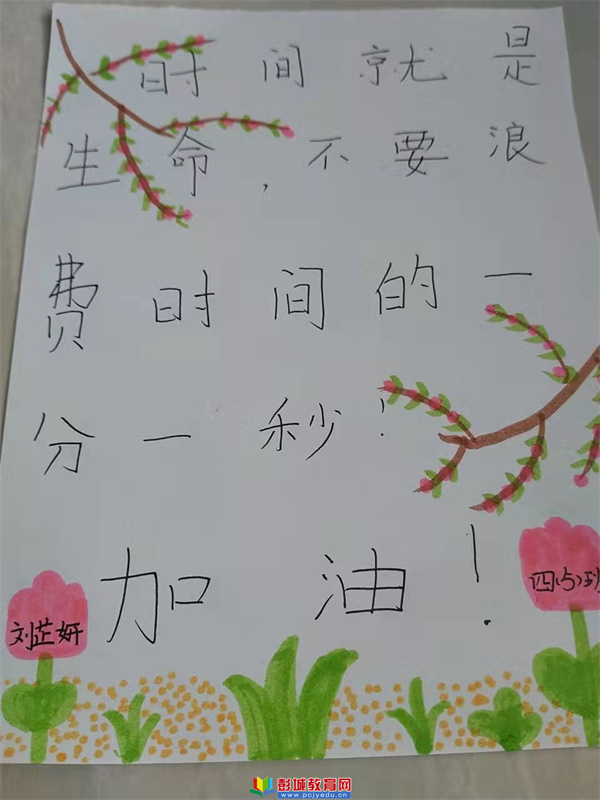 时间就是
生命，不要浪
费时间的一
分一秒！
加油！
刘芷妍
四(5)班
彭城教育网
www.pcjyedu.cn